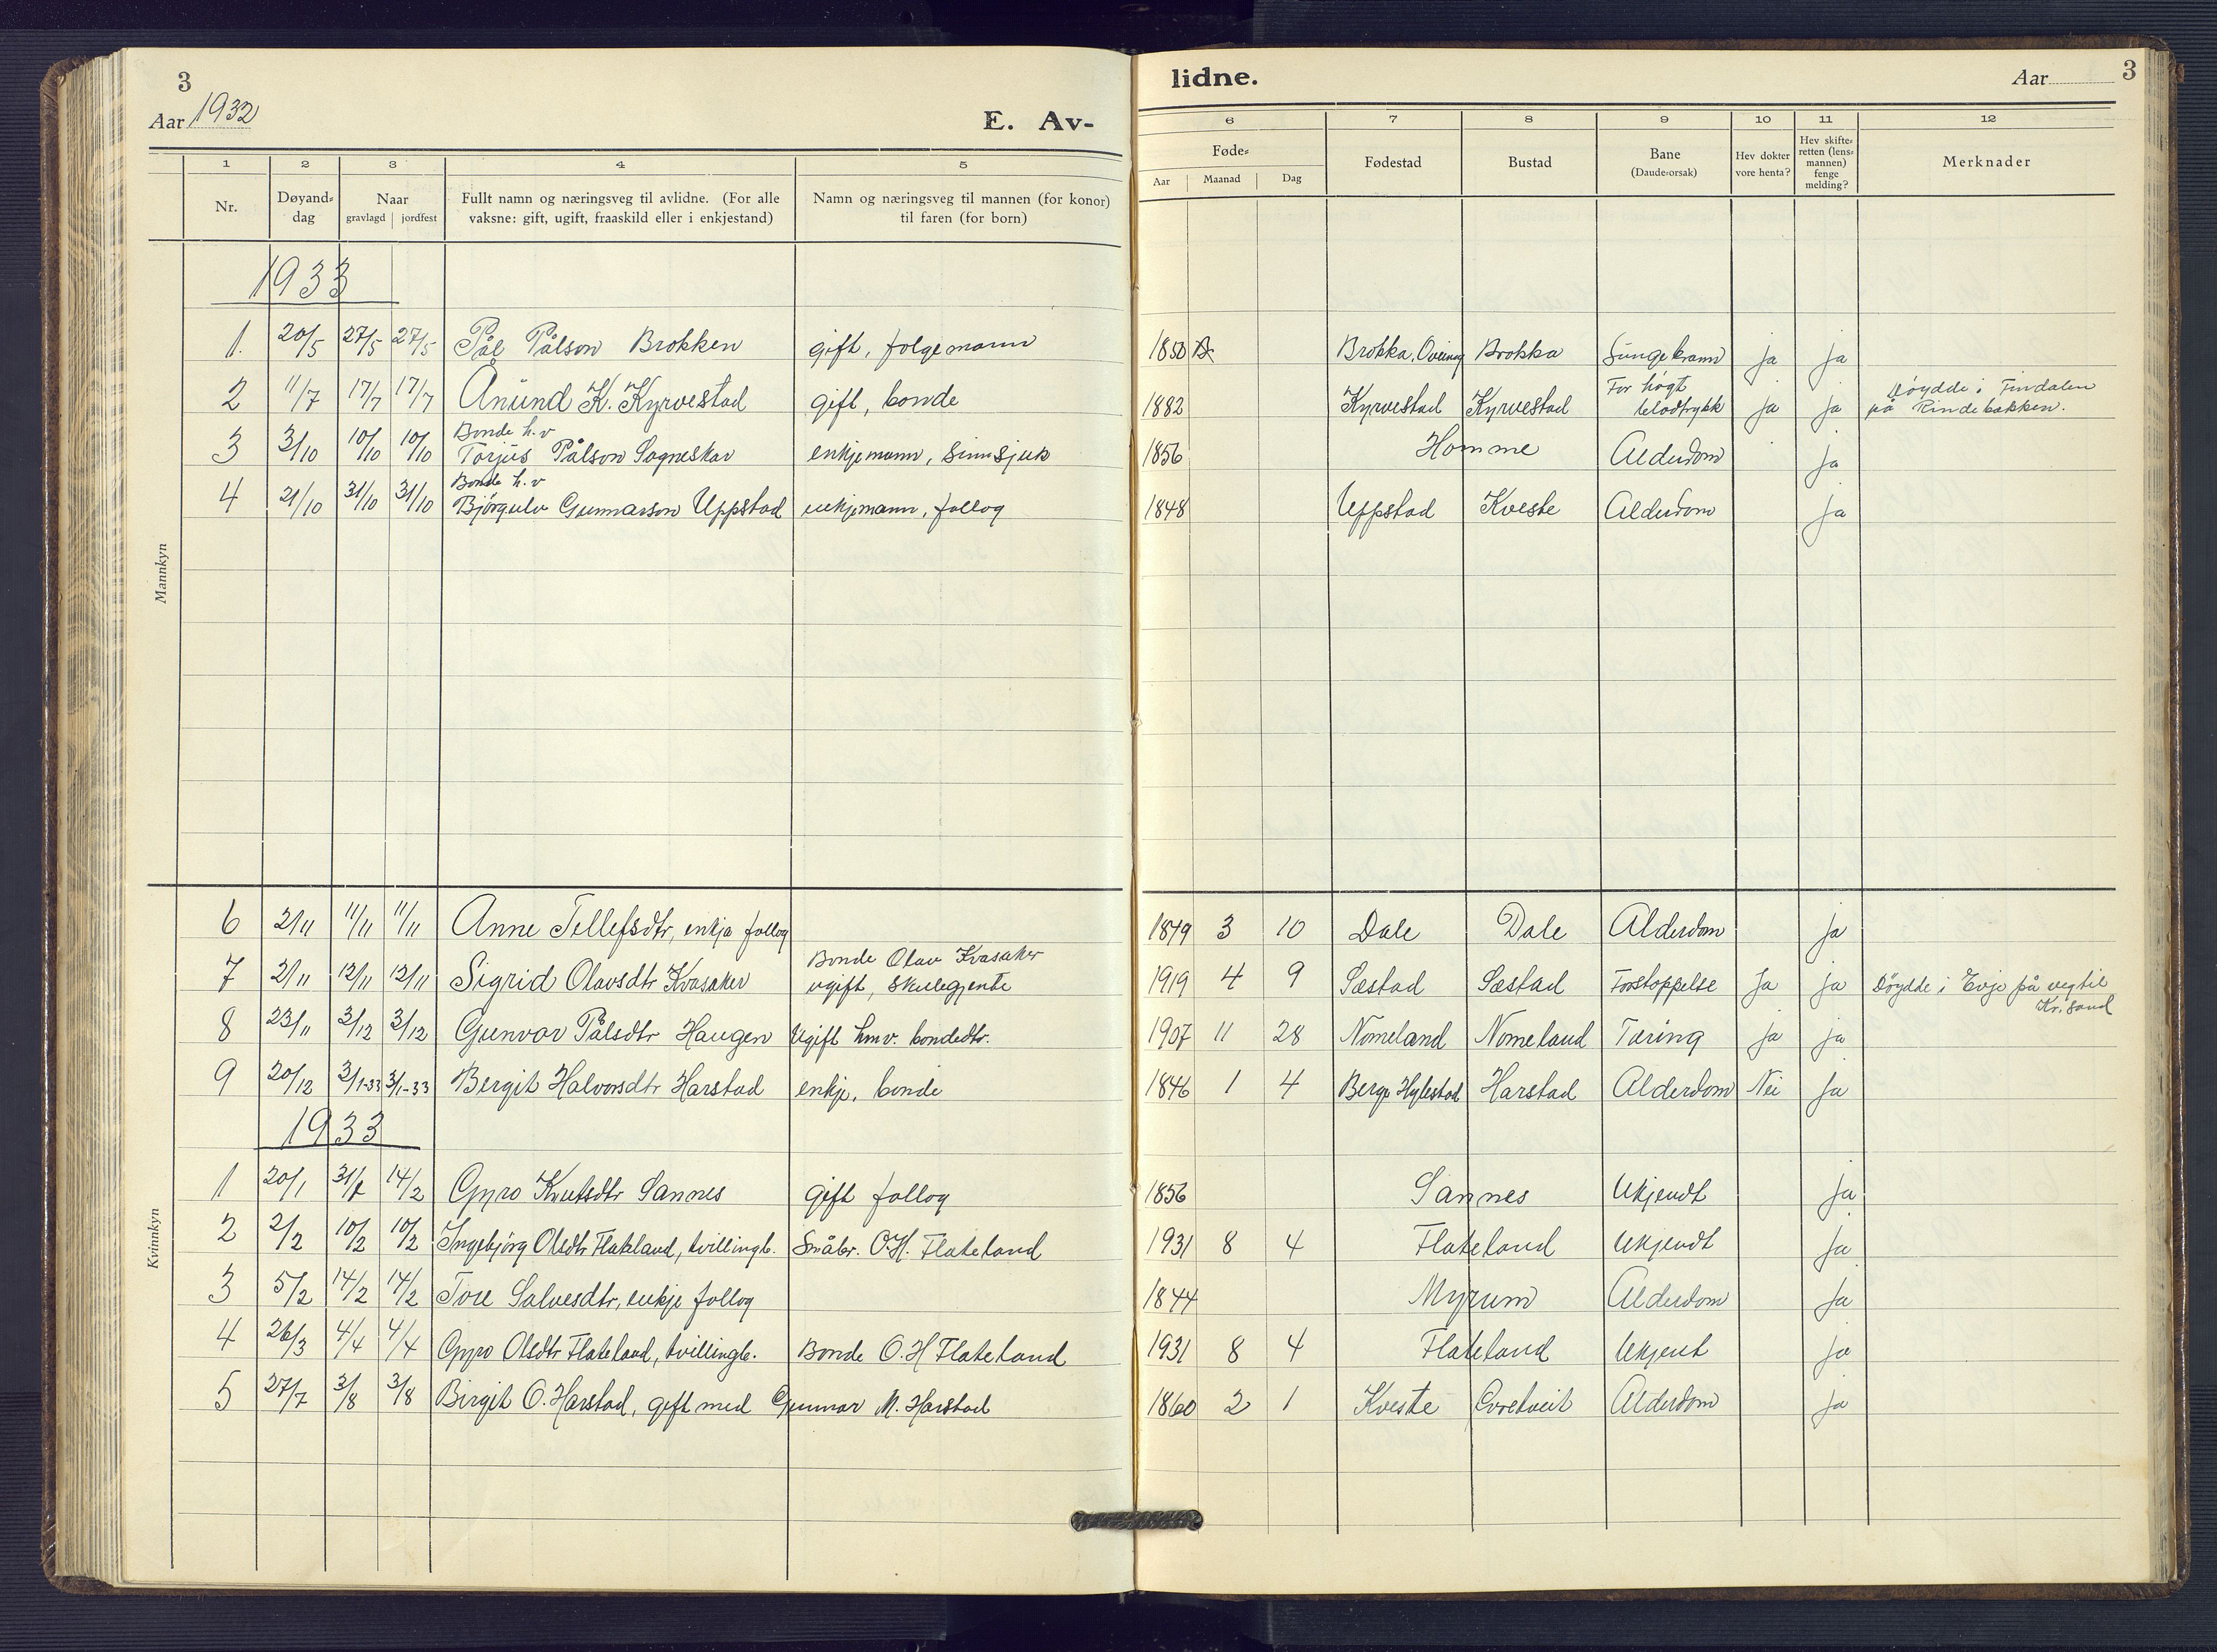 3
Aar 1932
E. Av-
lidne.
Aar
3
1 2 3 4 5 6 7 8 9 10 11 12
Nr.
Døyand-
dag
Naar
gravlagd jordfest
Fullt namn og næringsveg til avlidne. (For alle
vaksne: gift, ugift, fraaskild eller i enkjestand)
Namn og næringsveg til mannen (for konor)
til faren (for born)
Føde-
Aar Maanad Dag
Fødestad
Bustad
Bane
(Daude-orsak)
Hev dokter
vore henta?
Hev skifte-
retten (lens-
mannen)
fenge
melding?
Merknader
Mannkyn
1933
1. 20/5 27/5 27/5 Pål Pålson Brokken gift, folgemann 1850 Brokka, Brokka ja ja
For høgt Døydde i Findalen
2 11/7 17/7 17/7 Anund K. Kyrvestad gift, bonde 1882 Kyrvestad Kyrvestad blodtrykk ja ja på Rindebakken.
Bonde h.v
3 3/10 10/10 10/10 Torjus Pålson Sagneskar enkjemann, sinnsjuk 1856 Homme Alderdom ja
Bonde h.v
4 21/10 31/10 31/10 Bjørgulv Gunnarson Uppstad enkjemann, follog 1848 Uppstad Kveste Alderdom ja
Kvinnkyn
6 2/11 11/11 11/11 Anne Tellefsdtr, enkja follog 1849 3 10 Dale Dale Alderdom ja
Bonde Olav Kvasaker
7 2/11 12/11 12/11 Sigrid Olavsdtr Kvasaker ugift, skulegjente 1919 4 9 Sæstad Sæstad Forstoppelse Ja ja Døydde i Evje på veg til
Kr.sand
8 23/11 3/12 3/12 Gunvor Pålsdtr Haugen Ugift hmv. bondedtr. 1907 11 28 Nomeland Nomeland Tæring ja ja
9 20/12 3/1-33 3/1-33 Bergit Halvorsdtr Harstad enkje, bonde 1846 1 4 Berge Hylestad Harstad Alderdom Nei Ja
1933
1 20/1 31/1 14/2 Gyro Knutsdtr Sannes gift follog 1856 Sannes Ukjendt Ja
2 2/2 10/2 10/2 Ingebjörg Olsdtr Flateland, tvillingb. Småbr. O.H. Flateland 1931 8 4 Flateland Ukjendt Ja
3 5/2 14/2 14/2 Tore Salvesdtr, enkje follog 1844 Myrum Alderdom Ja
4 26/3 4/4 4/4 Gyro Olsdtr Flateland, tvillingb. Bonde O.H Flateland 1931 8 4 Flateland Ukjent ja
5 27/7 3/8 3/8 Birgit O. Harstad, gift med Gunnar M. Harstad 1860 2 1 Kveste Alderdom ja